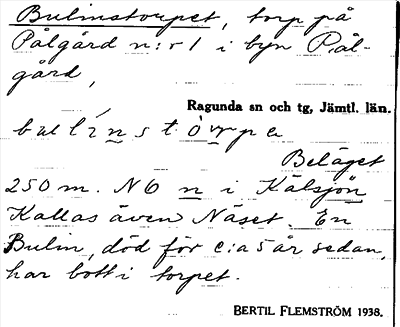 Bulinstorpet, torp på
Pålgård n:r 1 i byn Pål-
gård,
Ragunda sn och tg, Jämtl. län.
bulínstòrpe
Beläget
250 m. NO n i Kälsjön
Kallas även Näset. En
Bulin, död för c:a 5 år sedan,
har bott i torpet.
BERTIL FLEMSTRÖM 1938.